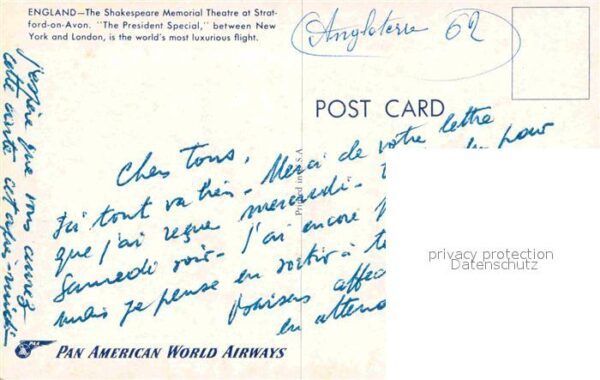 ENGLAND—The Shakespeare Memorial Theatre at Strat-
ford-on-Avon. "The President Special," between New
York and London, is the world's most luxurious flight.
Angleterre 62
POST CARD
Printed in U.S.A
Chers tous,
Ici tout va bien - Merci de votre lettre
que j'ai reçue mercredi - pour
Samedi soir - J'ai encore
mais je pense en sortir à
Baisers
en
J'espère que vous aurez
cette carte cet après-midi
privacy protection
Datenschutz
PAA
PAN AMERICAN WORLD AIRWAYS